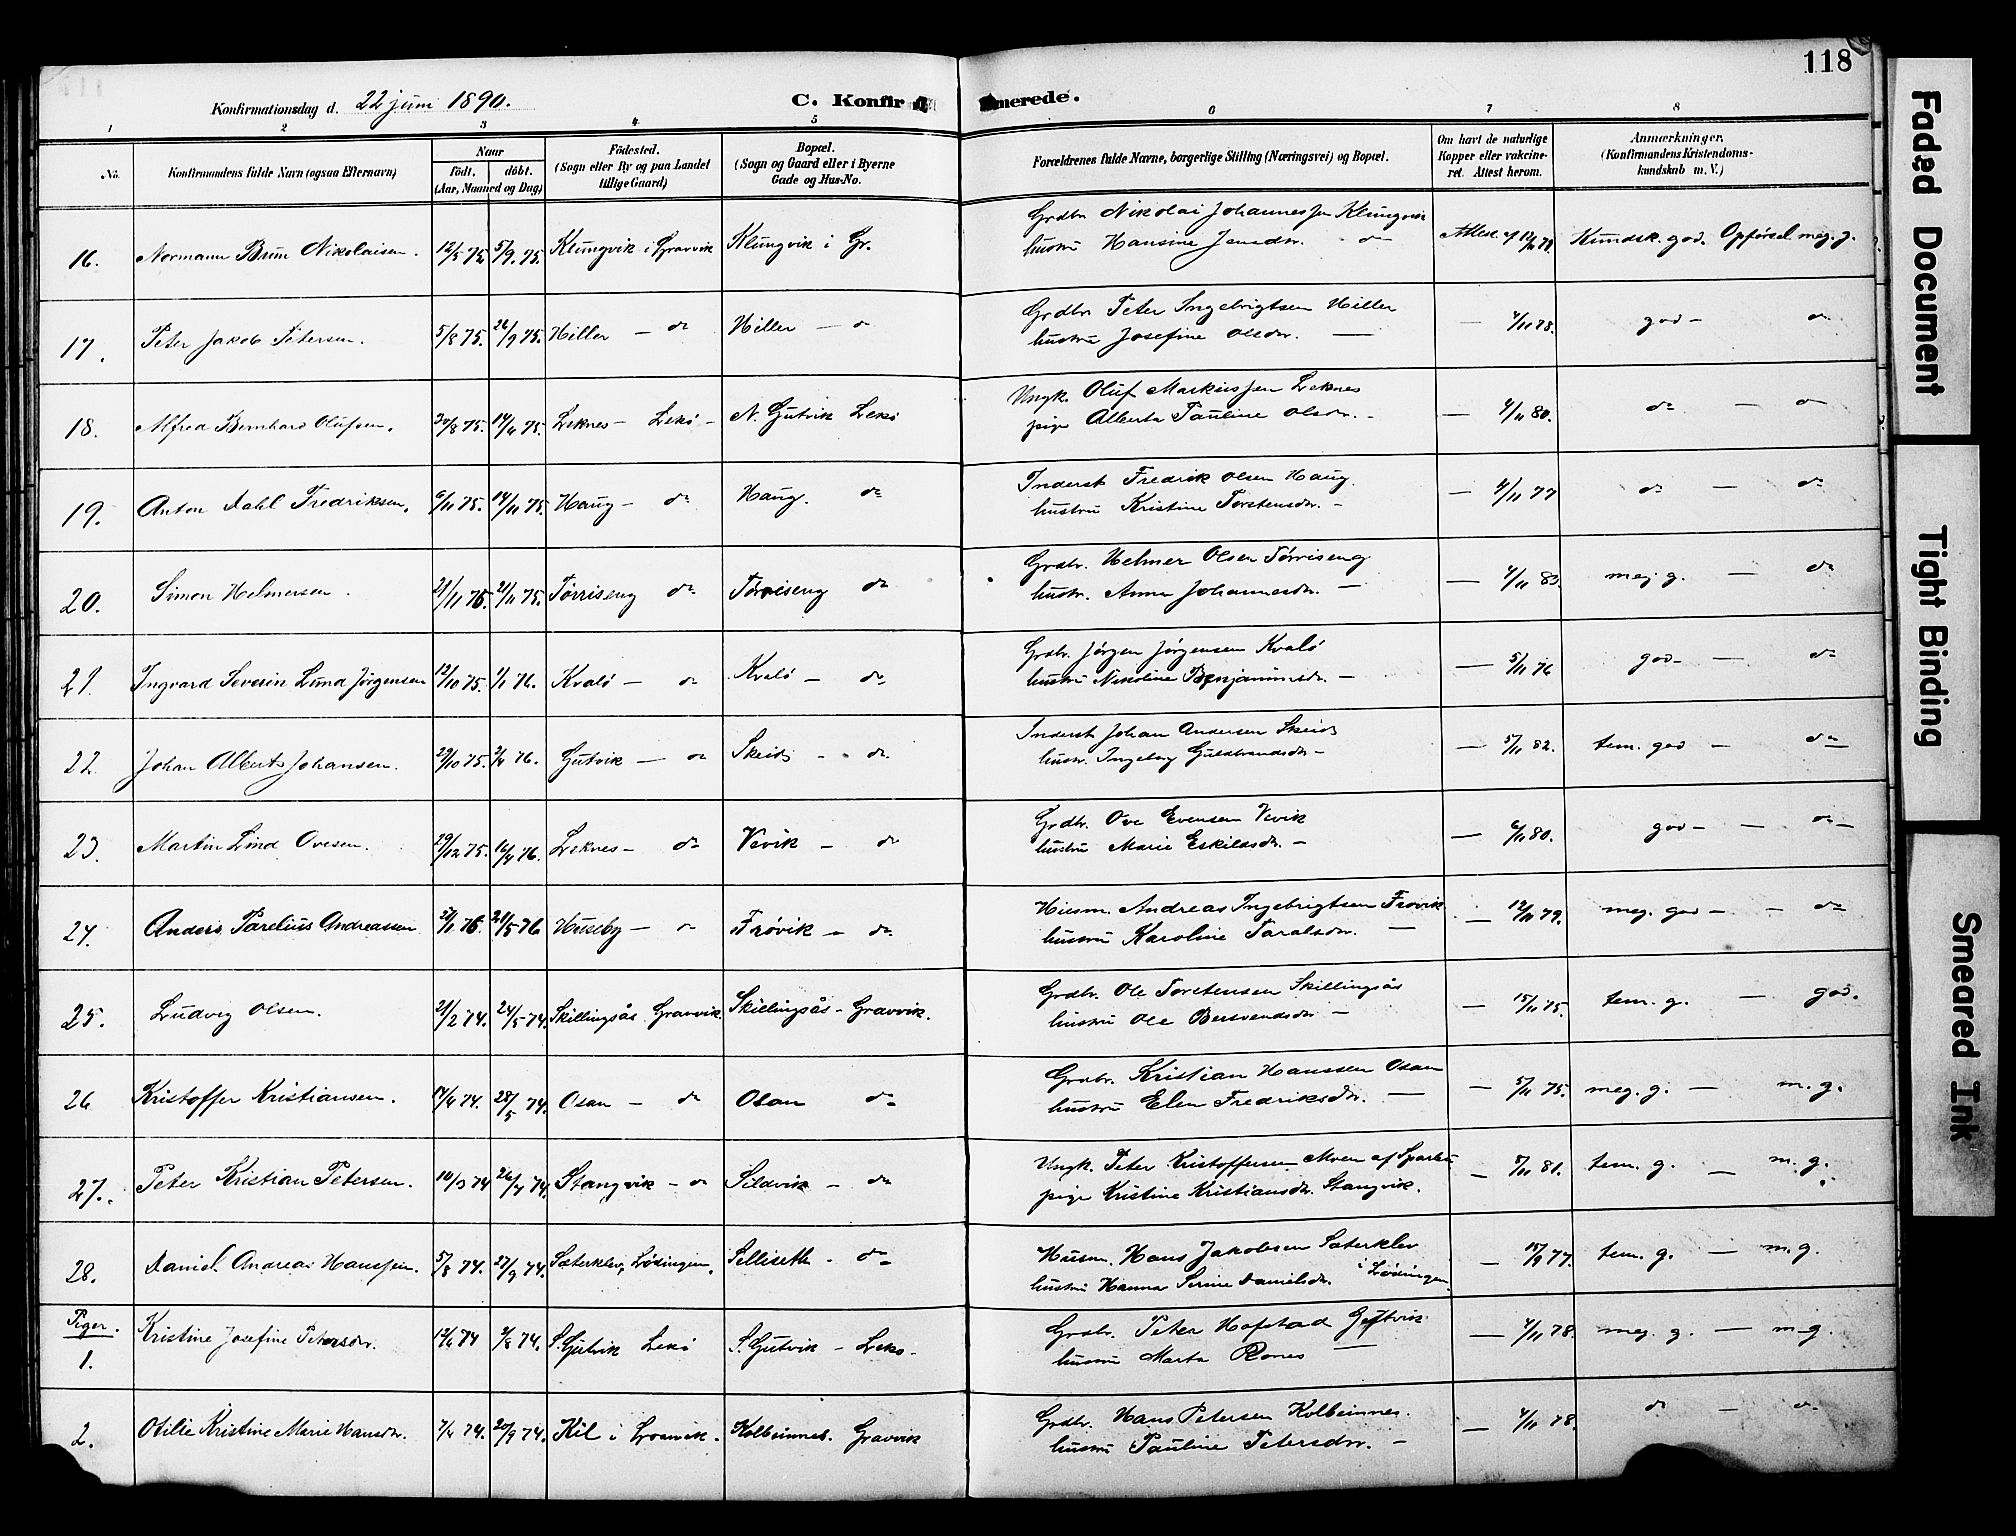 118
Konfirmationsdag d. 22 juni 1890. C. Konfirmerede.
1 2 3 4 5 6 7 8
No. Konfirmandens fulde Navn (ogsaa Efternavn) Naar født. døbt. (Aar, Maaned og Dag) Fødested. (Sogn eller By og paa Landet tillige Gaard) Bopæl. (Sogn og Gaard eller i Byerne Gade og Hus-No. Forældrenes fulde Navne, borgerlige Stilling (Næringsvei) og Bopæl. Om havt de naturlige Kopper eller vakcineret. Attest herom. Anmærkninger. (Konfirmandens Kristendomskundskab m. V.)
Grdbr Nikolai Johannesen Klungvik
16. Normann Brun Nikolaisen. 12/5 75 5/9 75. Klungvik i Gravvik Klungvik i Gr. hustru Hansine Jensdr. do Attest af 12/11 79. Kundsk. god. Opførsel meg. g.
Grdbr. Peter Ingebrigtsen Hiller
17. Peter Jakob Petersen. 5/8 75. 26/9 75. Hiller — do Hiller — do hustru Josefine Olsdr. — — 4/11 78. god — do
Ungk. Oluf Markussen Leknes
18. Alfred Bernhard Olufsen. 30/8 75. 14/11 75. Leknes — Lekø — N. Gutvik Lekø pige Alberta Pauline Olsdr. — — 4/11 80. do — do
Inderst Fredrik Olsen Haug.
19. Anton Dahl Fredriksen. 6/11 75. 14/11 75. Haug — do Haug. do hustru Kristine Torstensdr. — — 4/11 77 do — do
Grdbr. Helmer Olsen Tørriseng
20. Simon Helmersen. 21/11 75. 21/11 75. Tørriseng do Tørriseng do hustr. Anna Johannesdr. — — 4/11 83. meg g. — do
Grdbr. Jørgen Jørgensen Kvalø
21. Ingvard Severin Lund Jørgensen 12/10 75. 1/1 76. Kvalø — do Kvalø — do hustru Nikoline Benjaminsdr. — — 5/11 76 god — — do
Inderst Johan Andersen Skeid
22. Johan Albert Johansen. 29/10 75. 2/4 76. Gutvik — do Skeid — do hustr. Ingeborg Guldbrandsdr — — 5/11 82. tem. god — do
Grdbr. Ove Evensen Vevik
23. Martin Lind Ovesen. 29/12 75. 16/4 76. Leknes — do Vevik — do hustru Marie Eskildsdr. — — 6/11 80. god — — do —
Husm. Andreas Ingebrigtsen Frøvik
24. Anders Parelius Andreassen 27/1 76. 21/5 76 Huseby — do Frøvik — do hustru Karoline Taralsdr. — — 12/11 79. meg. god — — do
Grdbr. Ole Torstensen Skillingsås
25. Ludvig Olsen. 21/2 74. 24/5 74. Skillingsås Gravvik. Skillingsås — Gravvik. hustru Ole Bersvendsdr — — 15/11 75. tem. g. — god.
Grdbr. Kristian Hanssen Osan
26 Kristoffer Kristiansen. 17/4 74. 28/5 74. Osan — do Osan do hustru Elen Fredriksdr. — — 5/11 75. meg. g. — m. g.
Ungk. Peter Kristoffersen Moen af Sparbu
27. Peter Kristian Petersen. 10/3 74 26/4 74. Stangvik — do Sildvik — do pige Kristine Kristiansdr. Stangvik. — 5/11 81. tem. g. — m. g.
Husm. Hans Jakobsen Sæterklev
28. Daniel Andreas Hanssen. 5/8 74. 27/9 74. Sæterklev, Lødingen. Selliseth — do hustru Hanna Serine Danielsdr. i Lødingen — 15/9 77. tem. g. — m. g.
Piger.
Grdbr. Peter Hofstad Gutvik
1. Kristine Josefine Petersdr. 12/6 74 2/8 74. S. Gutvik Lekø S. Gutvik — Lekø. hustru Marta Rones — — 4/11 78. meg. g. — m. g.
Grdbr. Hans Petersen Kolbeinnes.
2. Otilie Kristine Marie Hansdr. 7/4 74. 20/9 74. Kil i Gravvik. Kolbeinnes. Gravvik hustru Pauline Petersdr. — — 4/11 78. do — do
Faded Document
Tight Binding
Smeared Ink